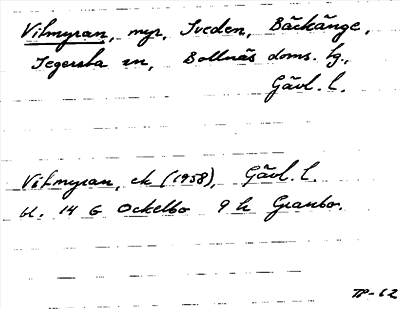 Vitmyran, myr, Sveden, Bäckänge,
Segersta sn, Bollnäs doms. tg.,
Gävl. l.
Vitmyran, ek (1958), Gävl. l.
bl. 14 G Ockelbo 9 h Granbo.
TP-62